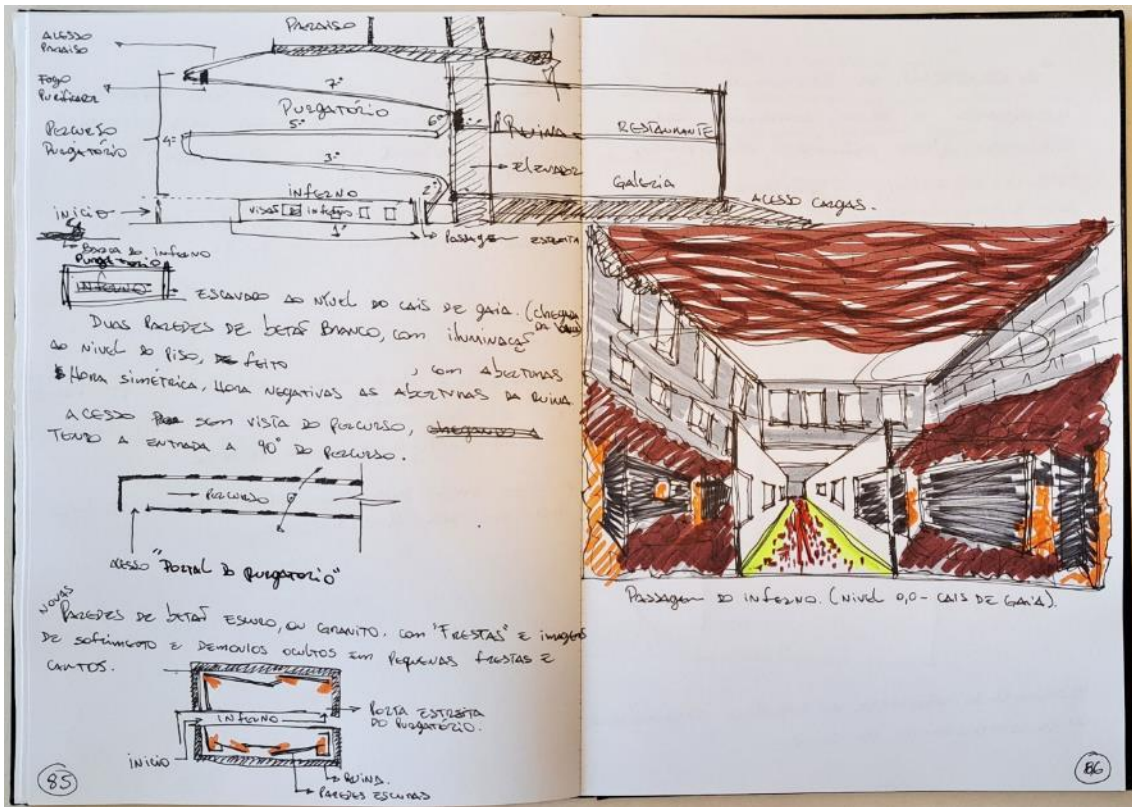 ACESSO
PARAISO
PARAISO
FOGO
PURIFICADOR
7º
PURGATÓRIO
5º
6º
PERCURSO
PURGATÓRIO
4º
RUINA
RESTAURANTE
3º
ELEVADOR
2º
INFERNO
GALERIA
INÍCIO
VISÃO INFERNO
1º
PASSAGEM ESTREITA
ACESSO CARGAS.
BOCA DO INFERNO
PURGATORIO
INFERNO
ESCAVADO AO NÍVEL DO CAIS DE GAIA. (CHEGADA
DUAS PAREDES DE BETÃO BRANCO, COM ILUMINAÇÃO
AO NIVEL DO PISO, FEITO , COM ABERTURAS
HORA SIMÉTRICA, HORA NEGATIVAS AS ABERTURAS DA RUINA
ACESSO SEM VISTA DO PERCURSO,
TENDO A ENTRADA A 90° DO PERCURSO.
PERCURSO
ACESSO "PORTAL DO PURGATORIO"
NOVAS
PAREDES DE BETÃO ESCURO, OU GRANITO. COM "FRESTAS" E IMAGENS
DE SOFRIMENTO E DEMONIOS OCULTOS EM PEQUENAS FRESTAS E
CANTOS.
INFERNO
PORTA ESTREITA
DO PURGATÓRIO.
INÍCIO
RUINA.
PAREDES ESCURAS
85
PASSAGEM DO INFERNO. (NIVEL 0,0 - CAIS DE GAIA).
86